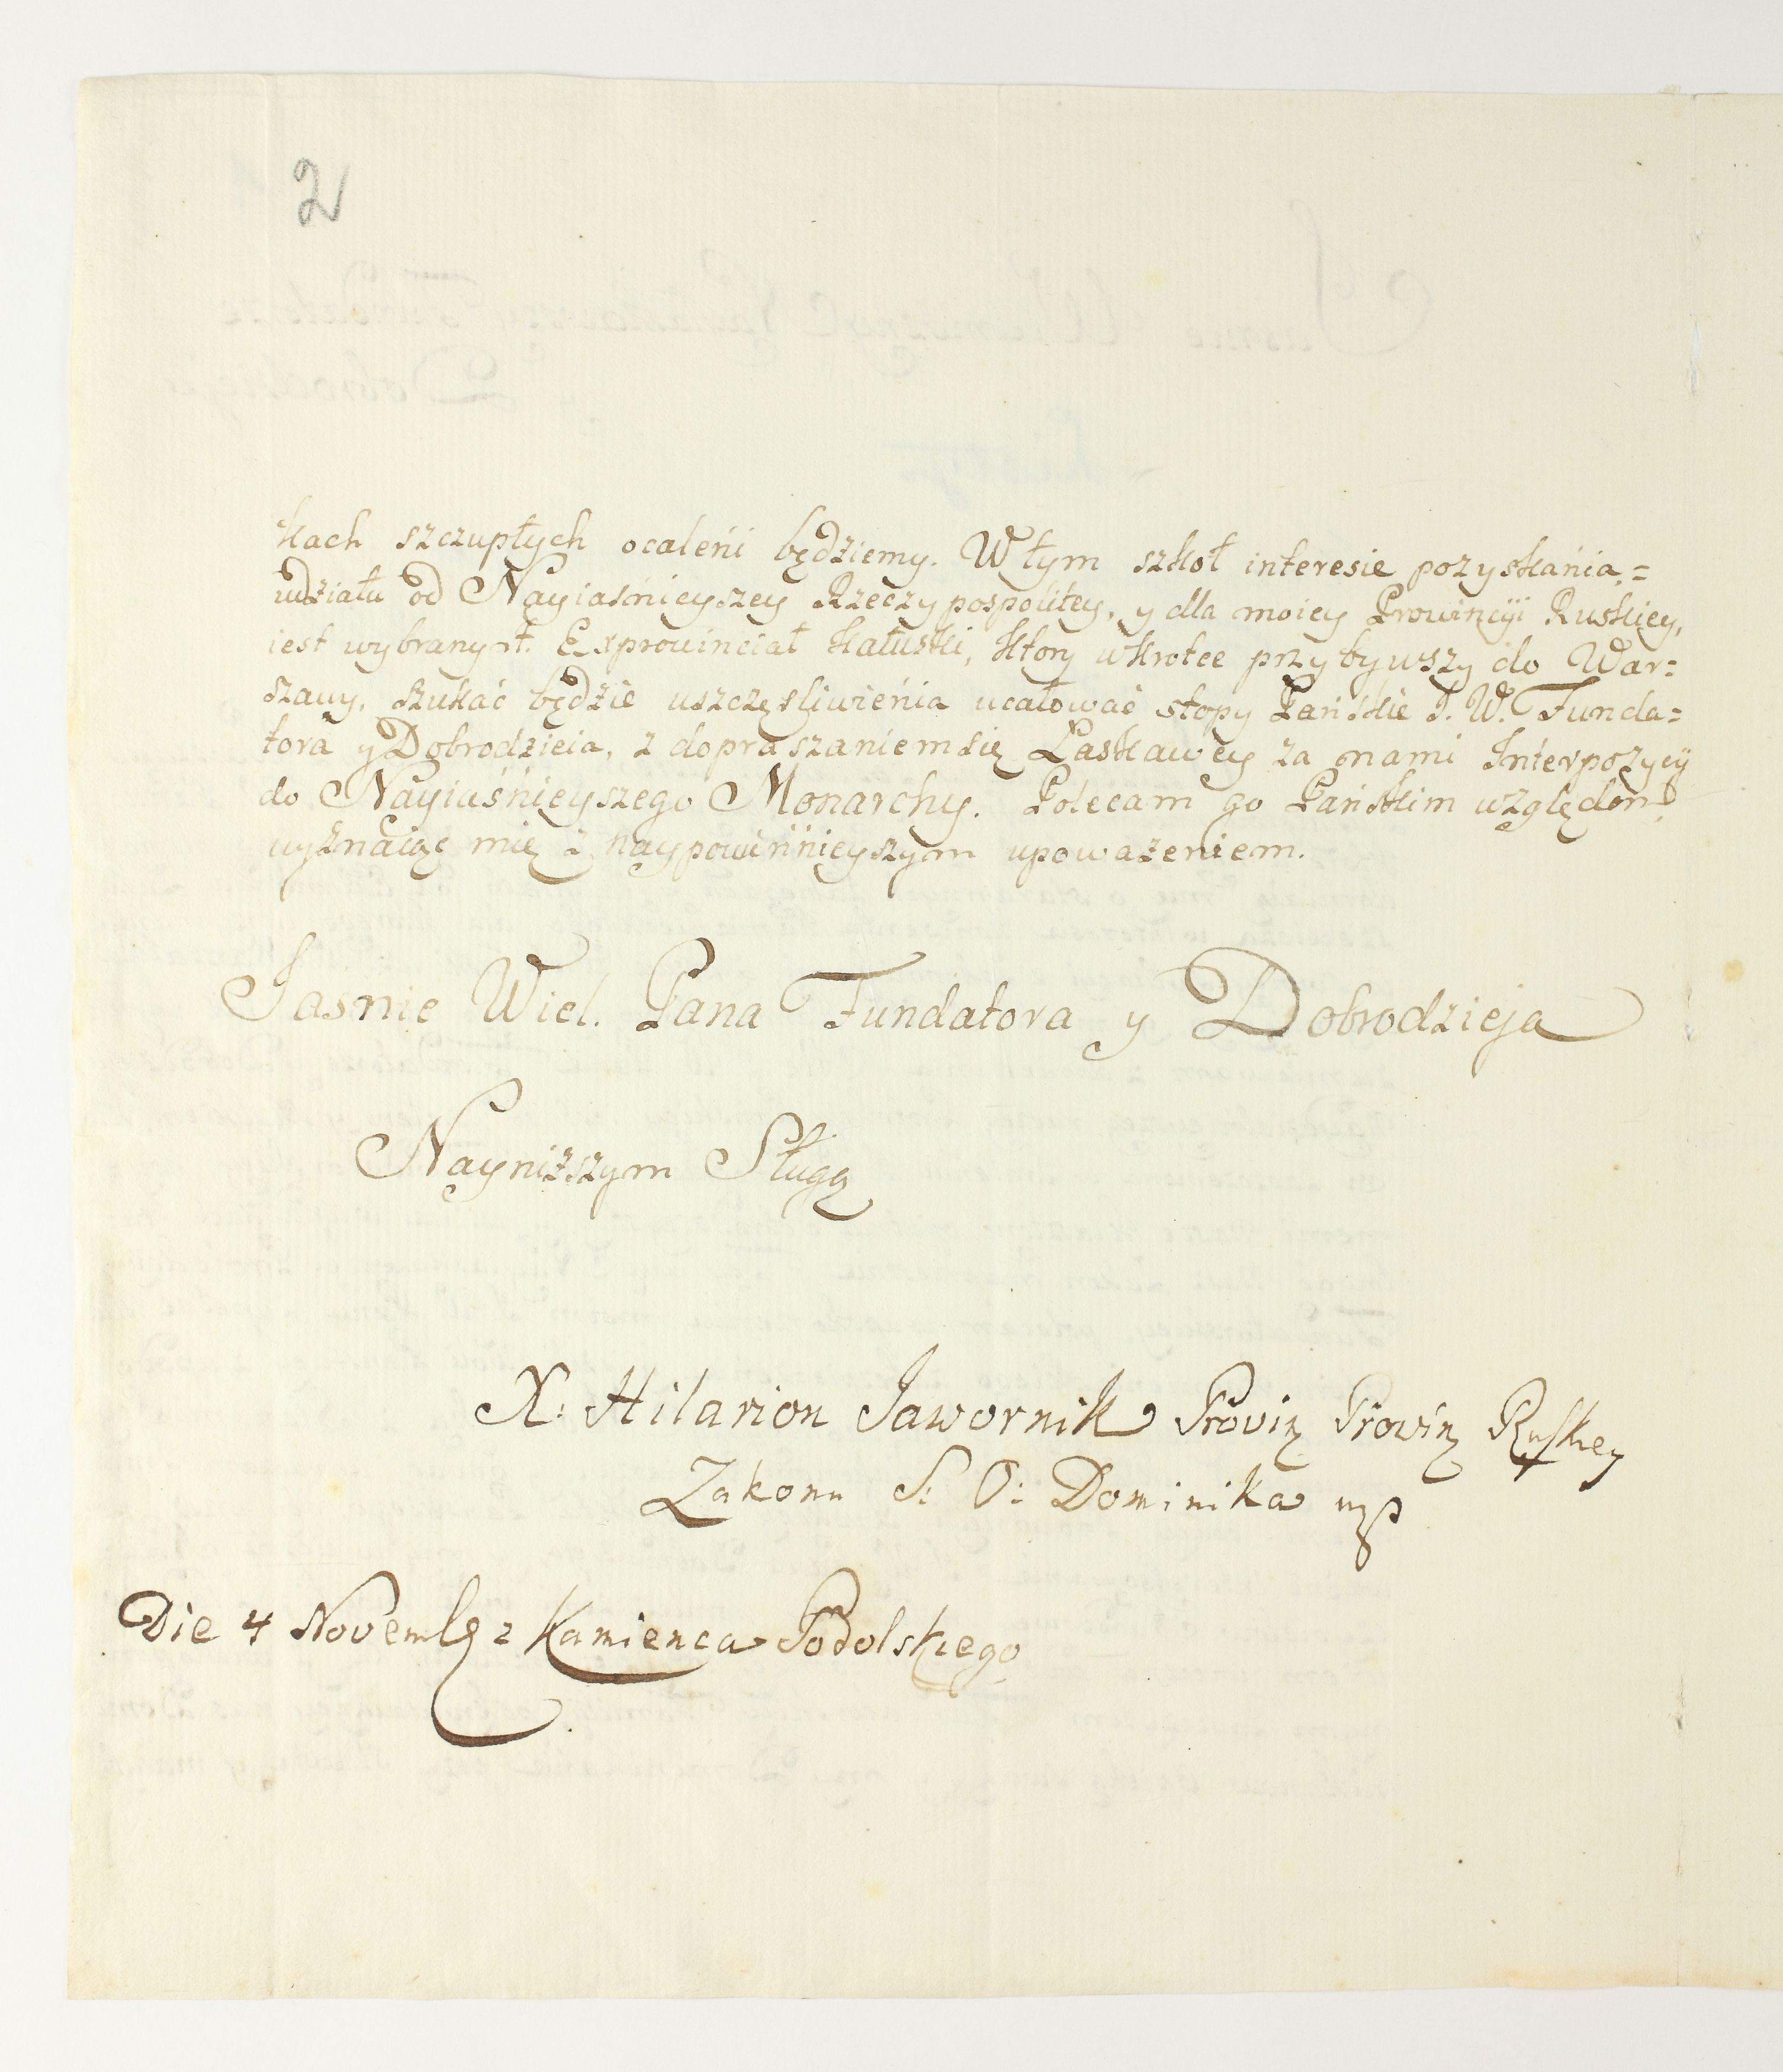 2
kach szczupłych ocaleńi będziemy. W tym szkoł interesie pozyskánia,=
udziału od Nayiaśnieyszey Rzeczypospolitey, y dla moiey Prowincyi Ruskiey,
iest wybrany Exprowinciał Kałuski, ktory wkrotce przybywszy do War=
szawy, szukać będzie uszczęsliwieńia ucałować stopy Pańskie J. W. Funda=
tora y Dobrodzieia, z dopraszaniem się Łaskawey za nami Interpozycyi
do Nayiaśnieyszego Monarchy. Polecam go Pańskim względom,
wyznaiąc mię z naypowinnieyszym upoważeniem.
Jasnie Wiel. Pana Fundatora y Dobrodzieja
Nayniższym Sługą
X: Hilarion Jawornik Prowin Prowin Ruskiey
Zakonu S: O: Dominika
Die 4 Novemb z Kamienca Podolskiego